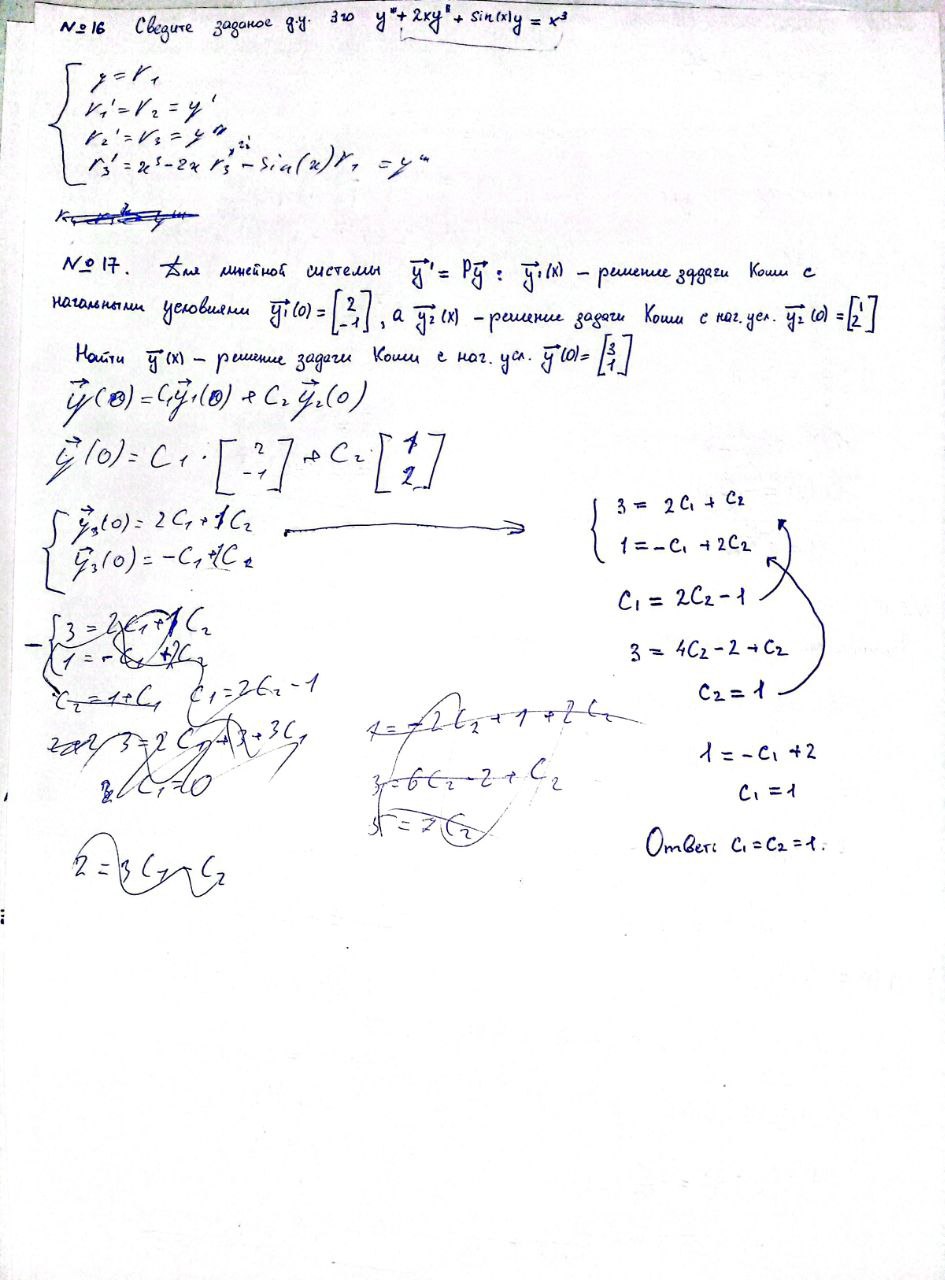 №16 Сведите заданое д.у. 3го y''' + 2xy'' + sin(x)y = x³
y = r₁
r₁' = r₂ = y'
r₂' = r₃ = y''
r₃' = x³ - 2x r₃ - sin(x) r₁ = y'''
№17. Для линейной системы y⃗' = Py⃗ : y⃗₁(x) – решение задачи Коши с
начальными условиями y⃗₁(0) = [2 -1], а y⃗₂(x) – решение задачи Коши с нач. усл. y⃗₂(0) = [1 2]
Найти y⃗(x) – решение задачи Коши с нач. усл. y⃗(0) = [3 1]
y⃗(0) = C₁y⃗₁(0) + C₂y⃗₂(0)
y⃗(0) = C₁ · [2 -1] + C₂ · [1 2]
y⃗₃(0) = 2C₁ + 1C₂
y⃗₃(0) = -C₁ + 2C₂
3 = 2C₁ + 1C₂
1 = -C₁ + 2C₂
C₂ = 1 + C₁ C₁ = 2C₂ - 1
3 = 2C₁ + 3 + 3C₁
C₁ = 0
2 = 3C₁ - C₂
1 = -2C₂ + 1 + 2C₂
3 = 6C₂ - 2 + C₂
5 = 7C₂
3 = 2C₁ + C₂
1 = -C₁ + 2C₂
C₁ = 2C₂ - 1
3 = 4C₂ - 2 + C₂
C₂ = 1
1 = -C₁ + 2
C₁ = 1
Ответ: C₁ = C₂ = 1.